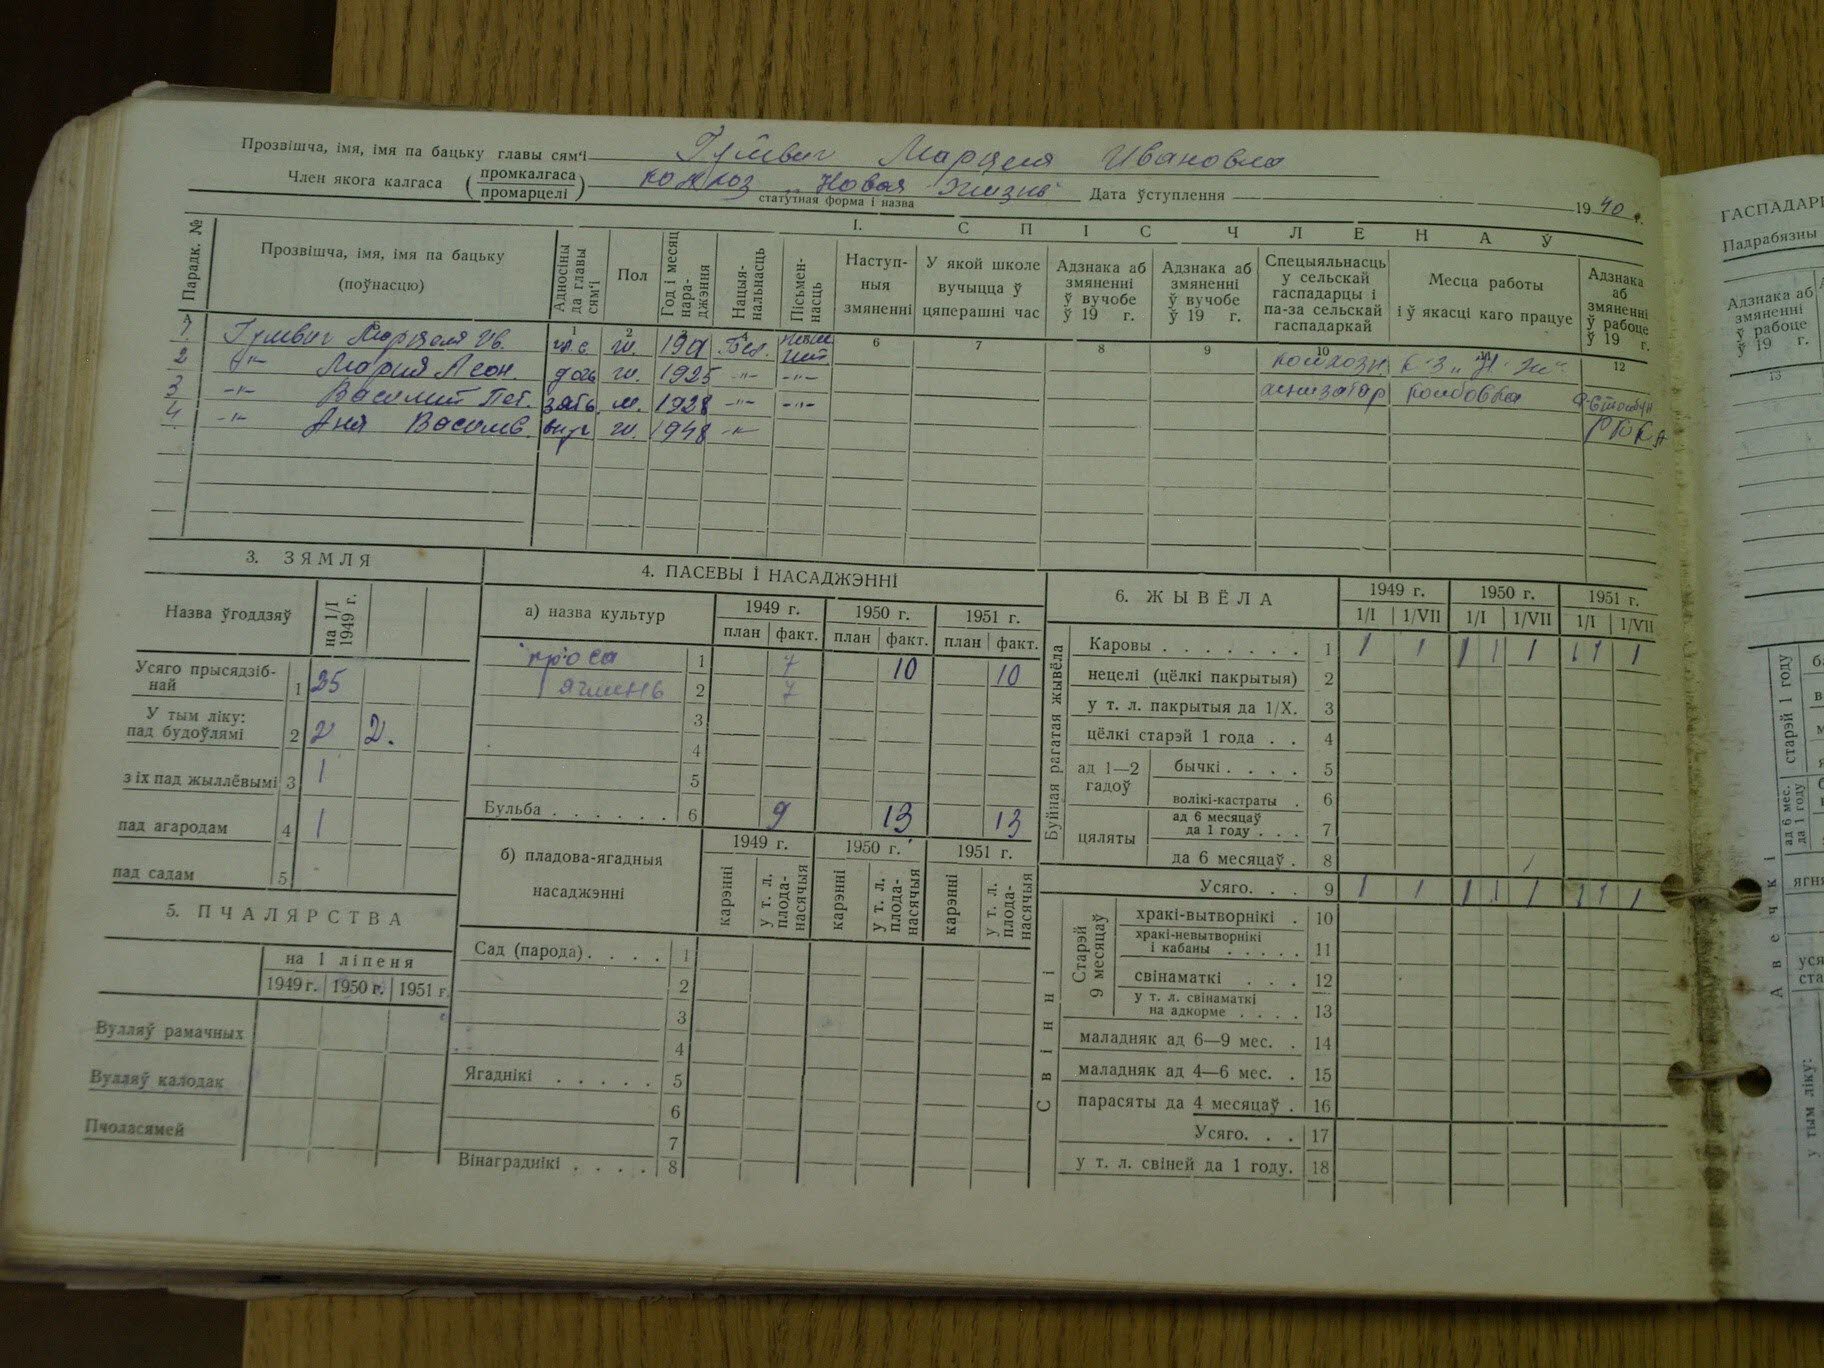 Прозвішча, імя, імя па бацьку главы сям'і Марцеля Ивановна
Член якога калгаса (промкалгаса / промарцелі) колхоз „Новая Жизнь"
статутная форма і назва
Дата ўступлення 1940 г.
1. СПІС ЧЛЕНАЎ
Парадк. № | Прозвішча, імя, імя па бацьку (поўнасцю) | Адносіны да главы сям'і | Пол | Год і месяц нараджэння | Нацыянальнасць | Пісьменнасць | Наступныя змяненні | У якой школе вучыцца ў цяперашні час | Адзнака аб змяненні ў вучобе ў 19 г. | Адзнака аб змяненні ў вучобе ў 19 г. | Спецыяльнасць у сельскай гаспадарцы і па-за сельскай гаспадаркай | Месца работы і ў якасці каго працуе | Адзнака аб змяненні ў рабоце ў 19 г.
А 1 2 6 7 8 9 10 12
1. Марцеля Ив. ж. Бел.
2 –"– Мария Леон. дочь ж. 1925 –"– –"– колхозн. к-з „Н. Ж"
3 –"– Василий Пет. зять м. 1928 –"– –"–
4 –"– Аня Васильев. ж. 1948 –"–
3. ЗЯМЛЯ
Назва ўгоддзяў | на 1/I 1949 г.
Усяго прысядзібнай 1 35
У тым ліку: пад будоўлямі 2 2 2.
з іх пад жыллёвымі 3 1
пад агародам 4 1
пад садам 5
5. ПЧАЛЯРСТВА
на 1 ліпеня
1949 г. 1950 г. 1951 г.
Вулляў рамачных
Вулляў калодак
Пчоласямей
4. ПАСЕВЫ І НАСАДЖЭННІ
а) назва культур | 1949 г. | 1950 г. | 1951 г.
план факт. план факт. план факт.
проса 1 7 10 10
ячмень 2 7
3
4
5
Бульба . . . . . . 6 9 13 13
б) пладова-ягадныя насаджэнні | 1949 г. | 1950 г. | 1951 г.
карэнні | у т. л. плоданасячыя | карэнні | у т. л. плоданасячыя | карэнні | у т. л. плоданасячыя
Сад (парода) . . . . 1
2
3
4
Ягаднікі . . . . . 5
6
7
Вінаграднікі . . . . 8
6. ЖЫВЁЛА | 1949 г. | 1950 г. | 1951 г.
1/I 1/VII 1/I 1/VII 1/I 1/VII
Буйная рагатая жывёла
Каровы . . . . . . . 1 1 1 1 1 1 1 1 1
нецелі (цёлкі пакрытыя) 2
у т. л. пакрытыя да 1/X. 3
цёлкі старэй 1 года . . 4
ад 1—2 гадоў
бычкі . . . . 5
волікі-кастраты . 6
цяляты
ад 6 месяцаў да 1 году . . . 7
да 6 месяцаў . 8
Усяго. . . 9 1 1 1 1 1 1 1 1
Свінні
Старэй 9 месяцаў
хракі-вытворнікі . 10
хракі-невытворнікі і кабаны . . . . . 11
свінаматкі . . . 12
у т. л. свінаматкі на адкорме . . . . 13
маладняк ад 6—9 мес. . 14
маладняк ад 4—6 мес. . 15
парасяты да 4 месяцаў . 16
Усяго. . . 17
у т. л. свіней да 1 году. 18
Падрабязны
Адзнака аб змяненні ў рабоце ў 19 г.
13
старэй 1 году
ад 6 мес. да 1 году
Авечкі
у тым ліку: